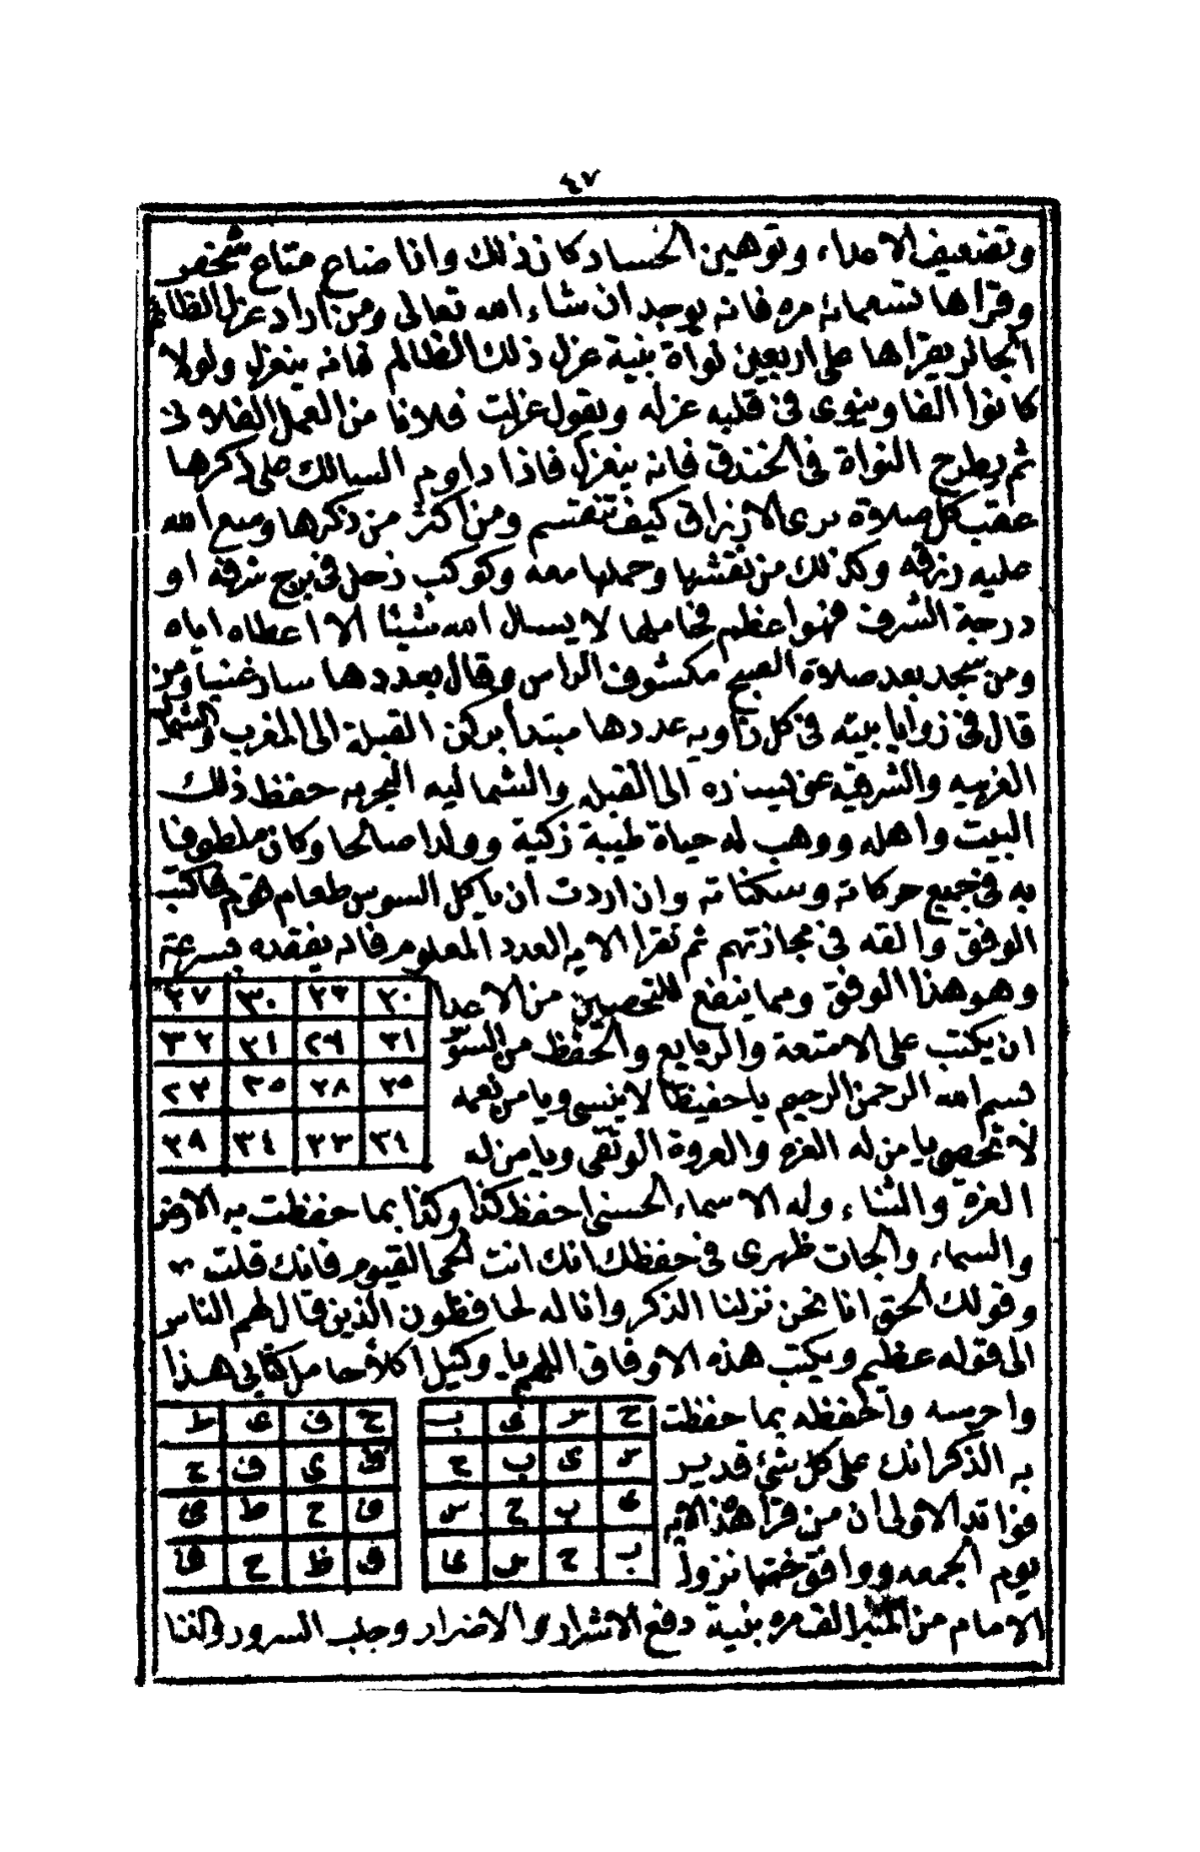 ٤٧
وتضعيف الاعداء وتوهين الحساد كان ذلك واذا ضاع متاع شخص
وقراها تسعمائة مره فانه يوجد ان شاء الله تعالى ومن اراد عزل الظالم
الجائر يقراها على اربعين نواة بنية عزل ذلك الظالم فانه ينعزل ولولا
كانوا الفا وينوى فى قلبه عزله ويقول عزلت فلانا من العمل الفلانى
ثم يطرح النواة فى الخندق فانه ينعزل فاذا داوم السالك على ذكرها
عقب كل صلاة يرى الارزاق كيف تنقسم ومن اكثر من ذكرها وسع الله
عليه رزقه وكذلك من نقشها وحملها معه وكوكب زحل فى برج شرفه او
درجة الشرف فهوا عظم فحاملها لا يسال الله شيئا الا اعطاه اياه
ومن سجد بعد صلاة الصبح مكشوف الراس وقال بعددها سار غنيا ومن
قال فى زوايا بيته فى كل زاويه عددها مبتدأ بركن القبلة الى المغرب والشمال
الغربيه والشرقيه عن يساره الى القبله والشماليه البحريه حفظ ذلك
البيت واهله ووهب له حياة طيبة زكية وولدا صالحا وكان ملطوفا
به فى جميع حركاته وسكناته وان اردت ان ياكل السوس طعام قوم فاكتب
الوفق والقه فى مجازتهم ثم تقرا الايه العدد المعلوم فانه يفقده بسرعة
وهو هذا الوفق ومما ينفع للتحصين من الاعدا
٢٠ ٢٣ ٣٠ ٢٧
ان يكتب على الامتعة والربايع والحفظ من السؤ
٣١ ٢٩ ٢١ ٣٢
بسم الله الرحمن الرحيم يا حفيظا لا ينسى ويا من نعمه
٢٥ ٢٨ ٣٥ ٢٣
لا تحصى يا من له العزه والعروة الوثقى ويا من له
٣٤ ٣٣ ٢٤ ٢٨
العزة والثناء وله الاسماء الحسنى احفظ كذا وكذا بما حفظت به الارض
والسماء والجات ظهرى فى حفظك انك انت الحى القيوم فانك قلت
وقولك الحق انا نحن نزلنا الذكر وانا له لحافظون الذين قال لهم الناس
الى قوله عظيم ويكتب هذه الاوفاق اللهم يا وكيل اكلأ حامل كتابى هذا
واحرسه واحفظه بما حفظت
ح س ى ب
ح ف ى ظ
به الذكر انك على كل شئ قدير
س ى ب ح
ظ ى ف ح
فوائد الاولى ان من قرأ هذه الايه
ى ب ح س
ف ح ظ ى
يوم الجمعه ووافق ختمها نزول
ب ح س ى
ى ظ ح ف
الامام من المنبر الف مره بنية دفع الاشرار والاضرار وجلب السرور والغنا